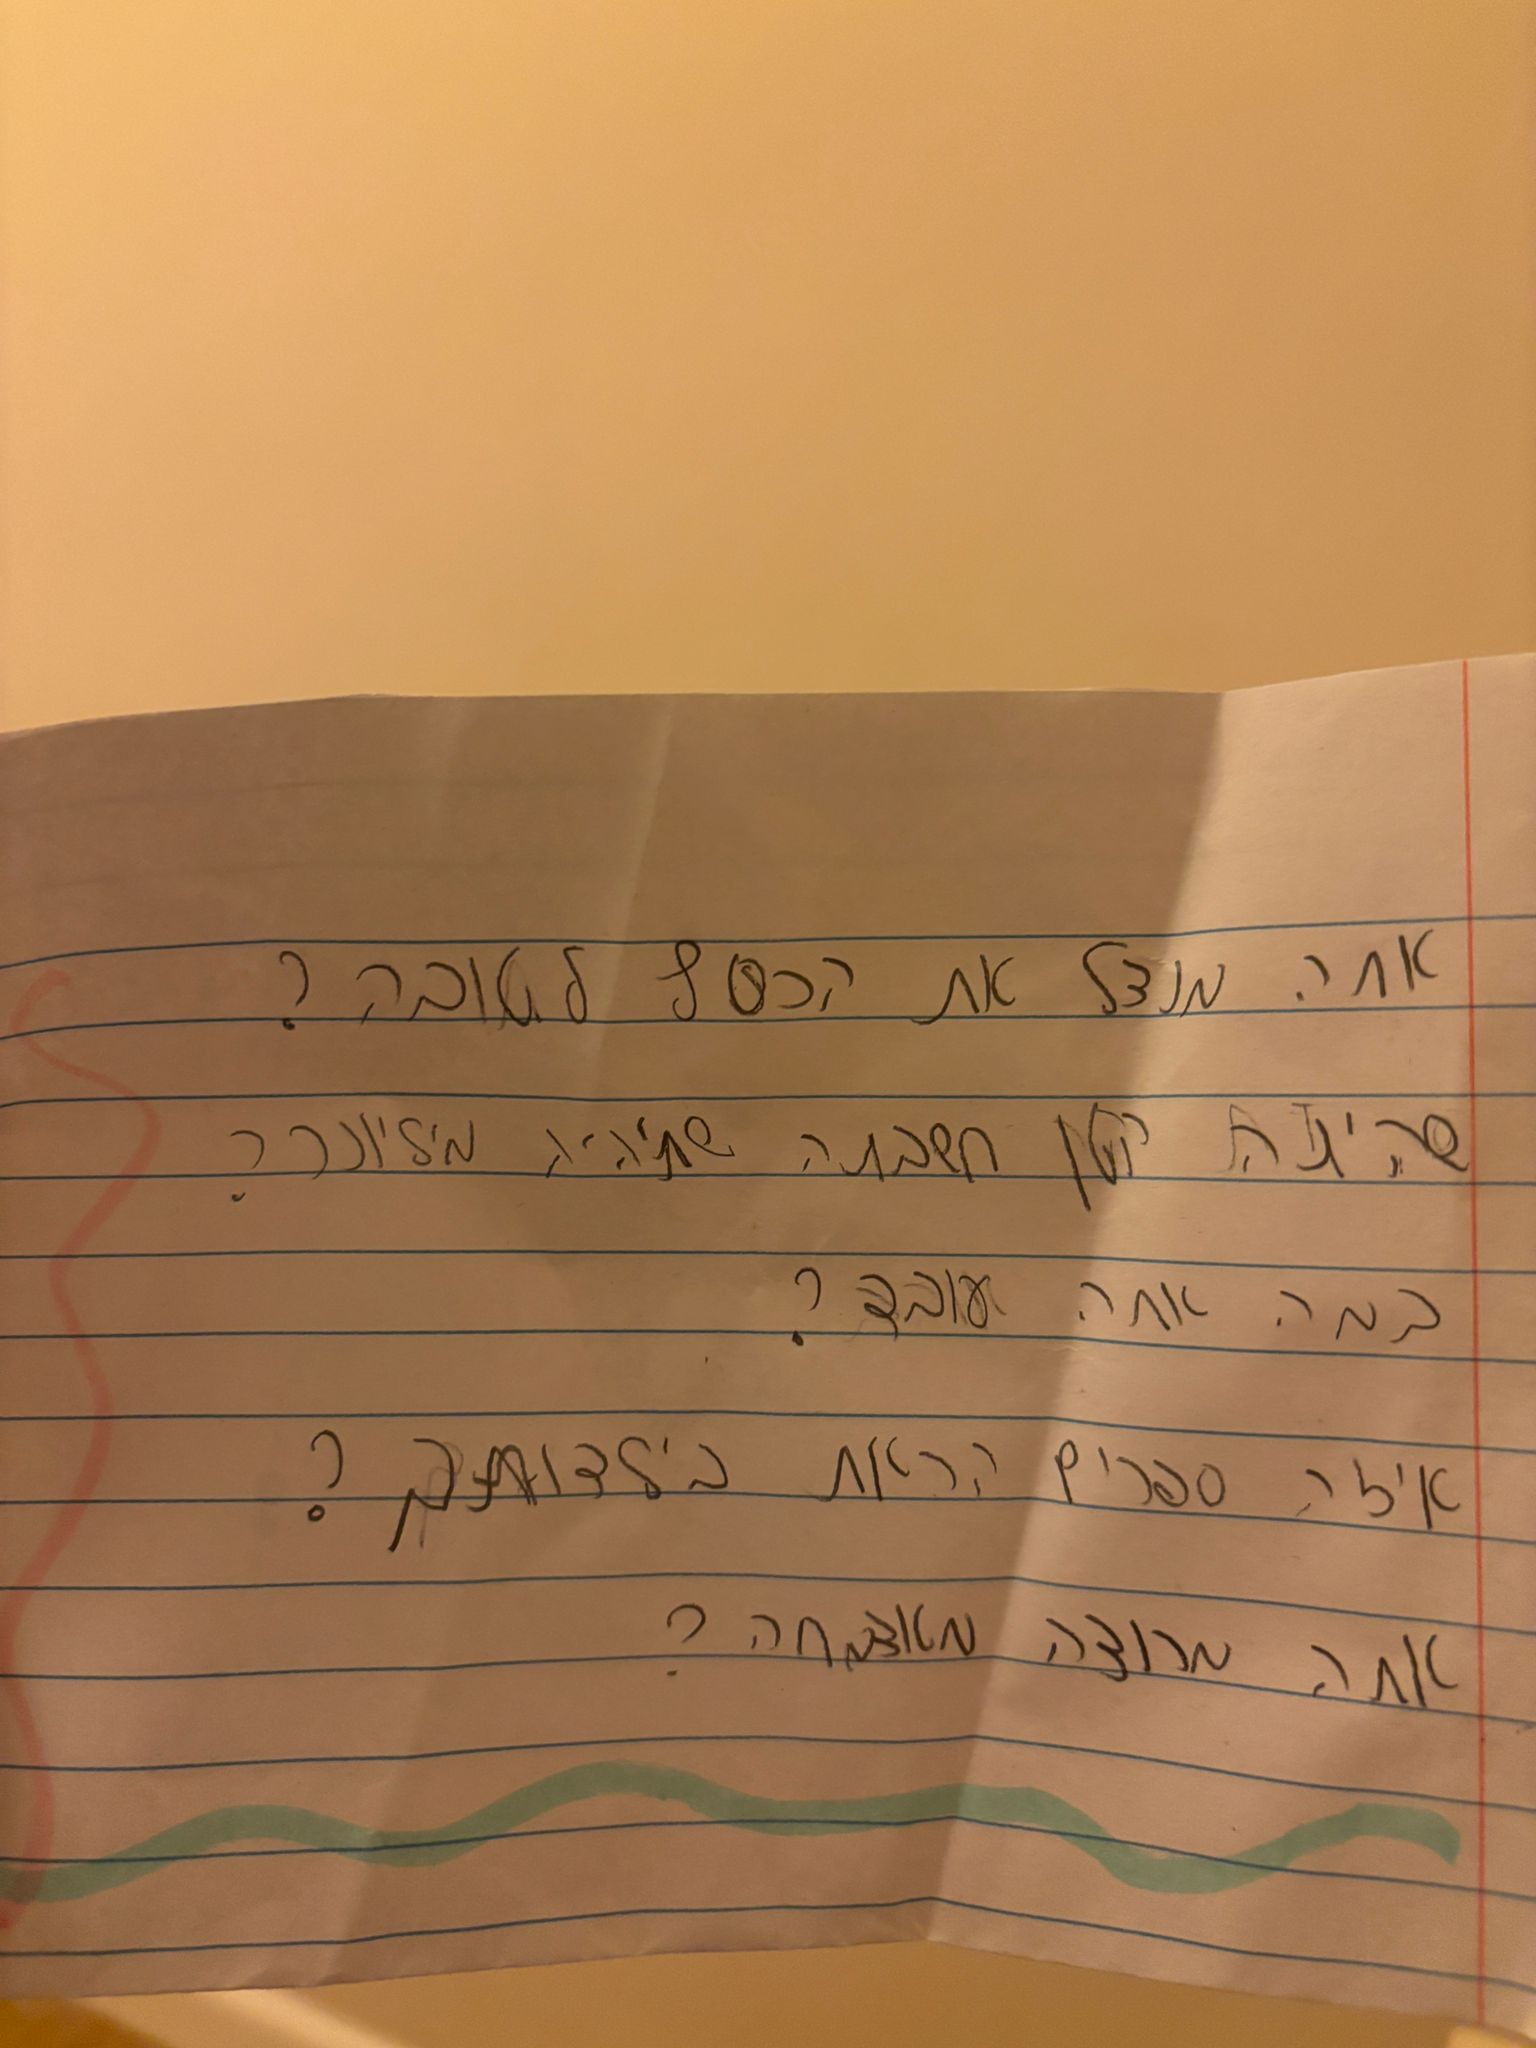 אתה מנצל את הכסף לטובה?
שהיתה קטן חשבתה שתיהיה מיליונר?
במה אתה עובד?
איזה ספרים הראת בילדותך?
אתה מרוצה מאצמחה?